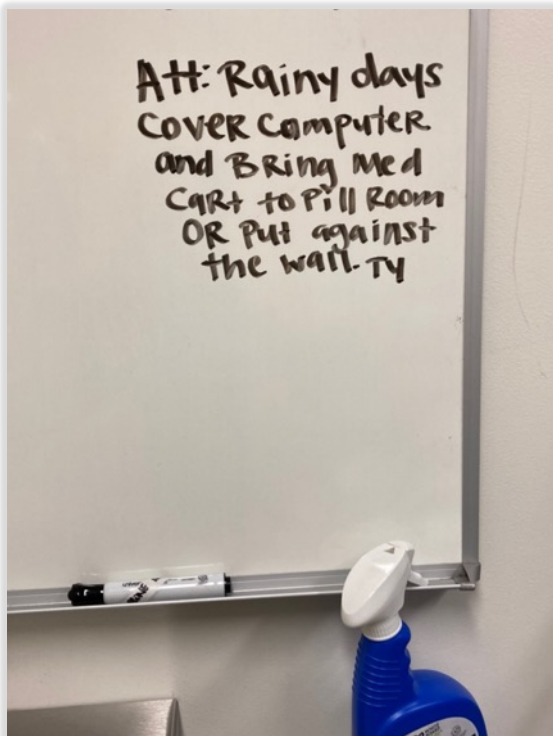 Att: Rainy days
COVER COMPUTER
and BRing Med
CaRt to Pill Room
OR Put against
the wall. TY